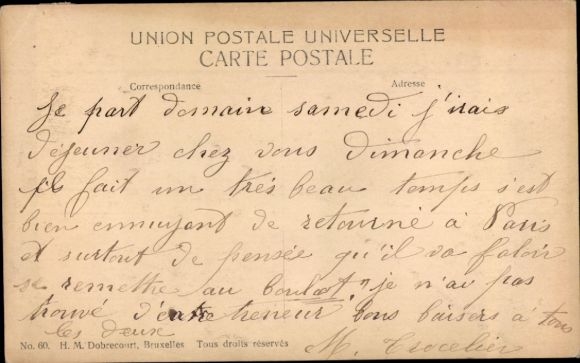 UNION POSTALE UNIVERSELLE
CARTE POSTALE
Correspondance Adresse
Je part domain samedi j'irais
déjeuner chez vous dimanche
il fait un très beau temps s'est
bien ennuyant de retourné à Paris
et surtout de pensée qu'il va faloir
se remettre au boulot, je n'ai pas
trouvé d'entreteneur, bons baisers à tous
les deux
M.
No. 60. H. M. Dobrecourt, Bruxelles Tous droits réservés